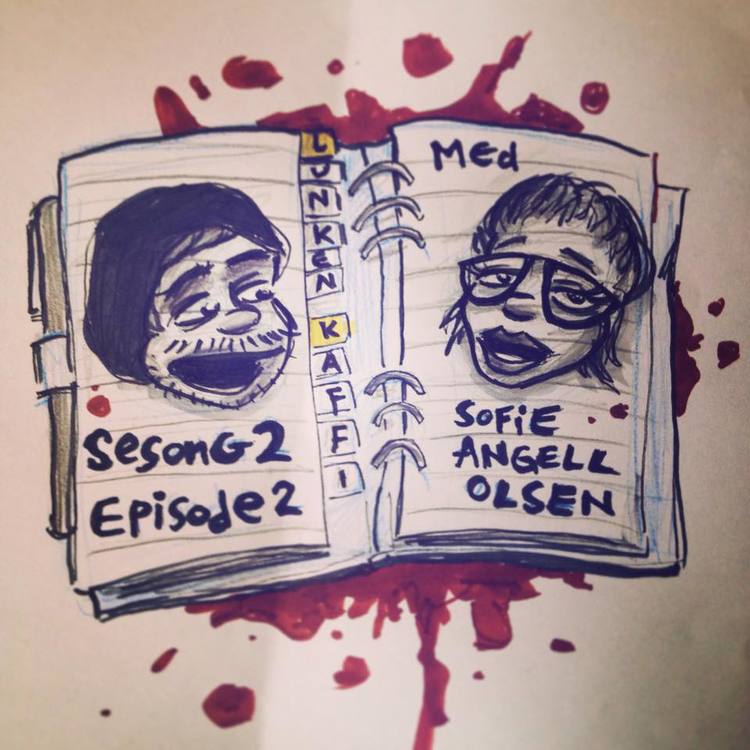 SesonG 2
Episode 2
LUNKEN
KAFFI
MEd
SOFiE
ANGELL
OLSEN